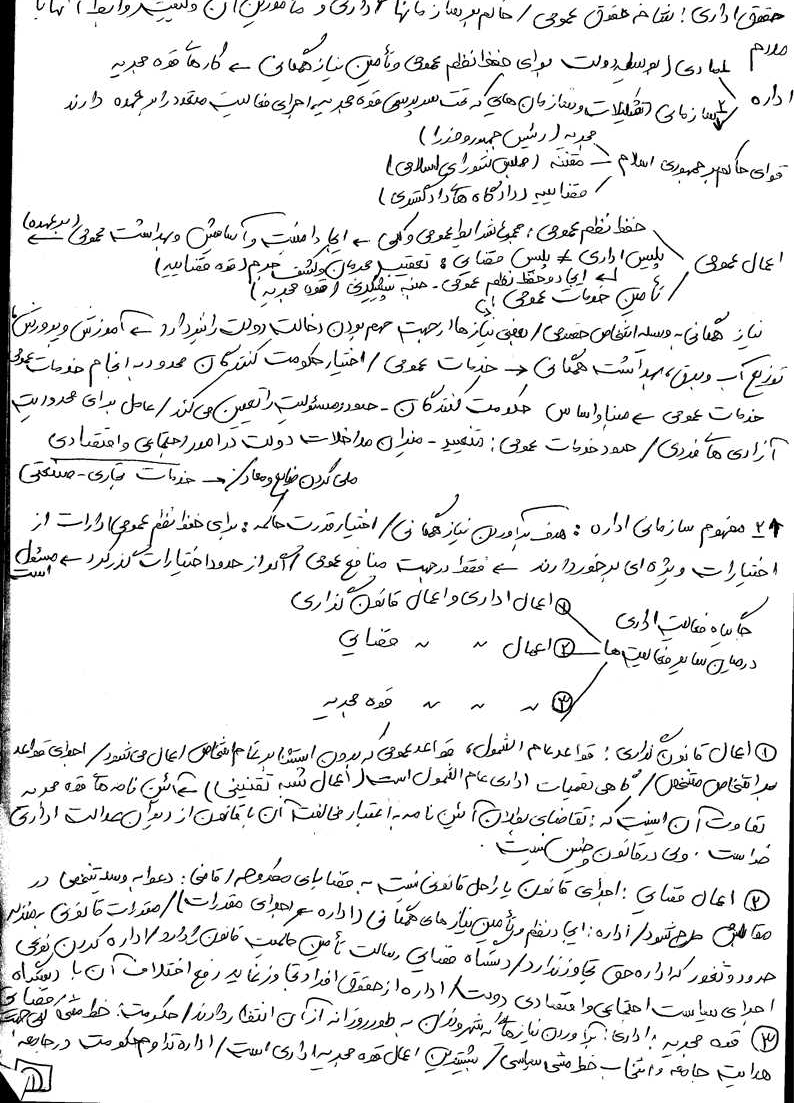 حقوق اداری: شاخه حقوق عمومی / حاکم بر سازمانها اداری و مأمورین آن
مفهوم
اداره
۱ـ مادی (بوسیله دولت برای حفظ نظم عمومی و تأمین نیاز همگانی ← کارهای قوه مجریه
۲ـ سازمانی (تشکیلات و سازمان هایی که تحت سرپرستی قوه مجریه، اجرای فعالیت متعدد را بر عهده دارند
قوای حاکم بر جمهوری اسلام
مجریه (رئیس جمهور و وزرا)
مقننه (مجلس شورای اسلامی)
قضاییه (دادگاه های دادگستری)
اعمال عمومی
حفظ نظم عمومی: مجموع شرایط عمومی و کلی ← ایجاد امنیت و آسایش و بهداشت عمومی (بر عهده)
پلیس اداری ≠ پلیس قضایی: تعقیب مجرمان و کشف جرم (قوه قضاییه)
ایجاد و حفظ نظم عمومی - جنبه پیشگیری (قوه مجریه)
تأمین خدمات عمومی
نیاز همگانی بوسیله اشخاص خصوصی / بعضی نیازها از جهت مهم بودن دخالت دولت را نیز دارد ← آموزش و پرورش
توزیع آب و برق، بهداشت همگانی → خدمات عمومی / اختیار حکومت کنندگان محدود به انجام خدمات عمومی
خدمات عمومی ← مبنا و اساس حکومت کنندگان - حدود مسئولیت را تعیین می کند / عامل برای محدودیت
آزادی های فردی / حدود خدمات عمومی: متغییر - میزان مداخلات دولت در امور اجتماعی و اقتصادی
ملی کردن صنایع و معادن → خدمات تجاری - صنعتی
۲ مفهوم سازمانی اداره: هدف برآوردن نیاز همگانی / اختیار قدرت حاکمه: برای حفظ نظم عمومی ادارات از
اختیارات ویژه ای برخوردارند ← فقط در جهت منافع عمومی / اگر از حدود اختیارات گذر کرد ← مسئول است
جایگاه فعالیت اداری
در میان سایر فعالیت ها
① اعمال اداری و اعمال قانون گذاری
② اعمال ~ ~ قضایی
③ ~ ~ ~ قوه مجریه
① اعمال قانون گذاری: قواعد عام الشمول، قواعد عمومی که بدون استثنا بر تمام اشخاص اعمال می شود / اجرای قواعد
بر اشخاص مشخص / گاهی تصمیمات اداری عام الشمول است (اعمال شبه تقنینی) ← آئین نامه های قوه مجریه
تفاوت آن اینست که: تقاضای بطلان آئین نامه به اعتبار مخالفت آن با قانون از دیوان عدالت اداری
خواست. ولی در قانون چنین نیست.
② اعمال قضایی: اجرای قانون یا راحل قانونی نسبت به قضایای مطروحه / قاضی: دعوا بوسیله شخصی در
مقابلش طرح شود / اداره: ایجاد نظم و تأمین نیازهای همگانی (اداره ← اجرای مقررات) / مقررات قانونی به منزله
حدود و ثغور که اداره حق تجاوز ندارد / دستگاه قضایی رسالت تأمین حاکمیت قانون را دارد / اداره کردن یعنی
اجرای سیاست اجتماعی و اقتصادی دولت / اداره از حقوق افراد تجاوز نماید رفع اختلاف آن با دستگاه قضایی
③ قوه مجریه: اداری: برآوردن نیازها که شهروندان به طور روزانه از آن انتظار دارند / حکومت: خط مشی کلی جهت
هدایت جامعه و انتخاب خط مشی سیاسی / بیشترین اعمال قوه مجریه اداری است / اداره تداوم حکومت در جامعه
۱